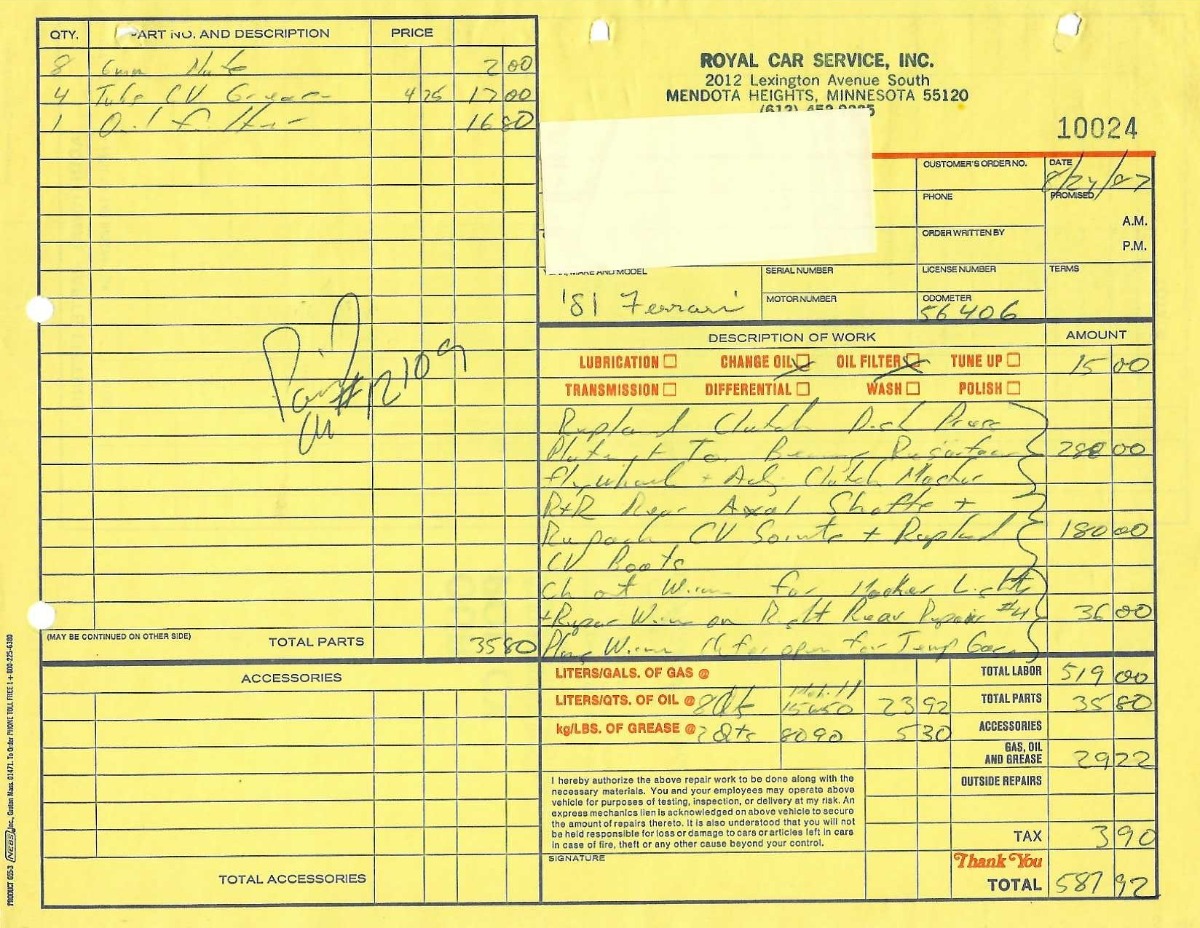 QTY. PART NO. AND DESCRIPTION PRICE
8 6mm Nuts 2 00
4 Tube CV Grease 4 25 17 00
1 Oil filter 16 80
Paid
#12109
(MAY BE CONTINUED ON OTHER SIDE) TOTAL PARTS 35 80
ACCESSORIES
TOTAL ACCESSORIES
PRODUCT 655-3 NEBS Inc., Groton, Mass. 01471. To Order PHONE TOLL FREE 1 + 800-225-6380
ROYAL CAR SERVICE, INC.
2012 Lexington Avenue South
MENDOTA HEIGHTS, MINNESOTA 55120
(612)
10024
CUSTOMER'S ORDER NO. DATE 8/24/87
PHONE PROMISED
A.M.
ORDER WRITTEN BY P.M.
MAKE AND MODEL SERIAL NUMBER LICENSE NUMBER TERMS
'81 Ferrari MOTOR NUMBER ODOMETER 56406
DESCRIPTION OF WORK AMOUNT
LUBRICATION CHANGE OIL OIL FILTER TUNE UP 15 00
TRANSMISSION DIFFERENTIAL WASH POLISH
Replaced Clutch Disk Press
Plate + T.O. Bearing Resurface 288 00
flywheel + Adj. Clutch Master
R+R Rear Axel Shafts +
Repack CV Joints + Replaced 180 00
CV Boots
Ch out Wires for Marker Lights
+ Repair Wire on Right Rear Repair #4 36 00
Plug Wire for Temp
LITERS/GALS. OF GAS @ TOTAL LABOR 519 00
LITERS/QTS. OF OIL @ 8 Qts Mobil 1 15W50 23 92 TOTAL PARTS 35 80
kg/LBS. OF GREASE @ 2 Qts 8090 5 30 ACCESSORIES
GAS, OIL AND GREASE 29 22
OUTSIDE REPAIRS
I hereby authorize the above repair work to be done along with the
necessary materials. You and your employees may operate above
vehicle for purposes of testing, inspection, or delivery at my risk. An
express mechanics lien is acknowledged on above vehicle to secure
the amount of repairs thereto. It is also understood that you will not
be held responsible for loss or damage to cars or articles left in cars
in case of fire, theft or any other cause beyond your control.
TAX 3 90
SIGNATURE
Thank You
TOTAL 587 92